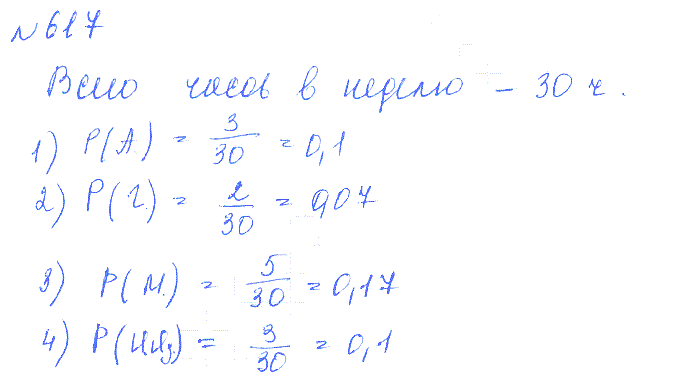 № 617
Всего часов в неделю – 30 ч.
1) P(A.) = 3/30 = 0,1
2) P(Г.) = 2/30 = 0,07
3) P(М.) = 5/30 = 0,17
4) = 3/30 = 0,1